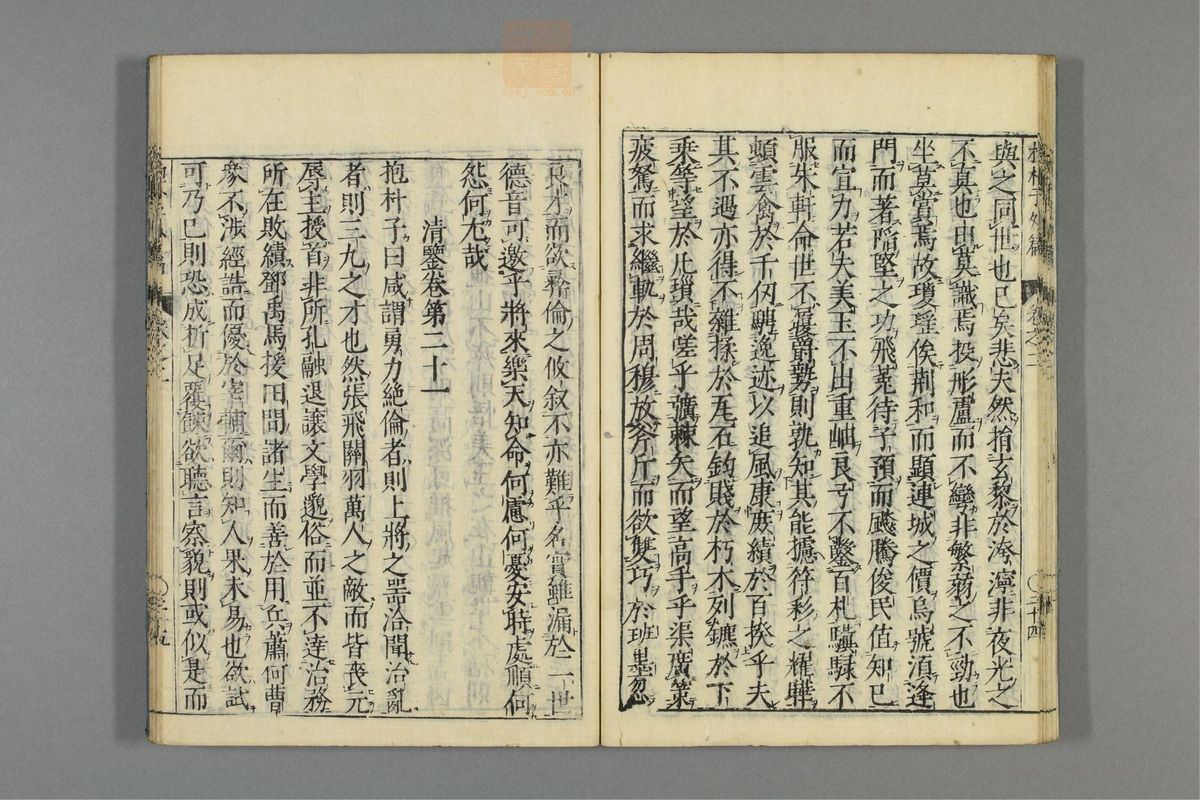 與之同世也已矣悲夫然捐玄黎於洿濘非夜光之
不真也由莫識焉投彤盧而不彎非繁弱之不勁也
坐莫賞焉故瓊瑤俟荆和而顯連城之價烏號湏逢
門而著陷堅之功飛菟待子預而飈騰俊民值知已
而宜力若夫美玉不出重岫良弓不鑿百札驥騄不
服朱軒命世不履爵勢則孰知其能攄符彩之耀曄
頓雲禽於千仭騁逸迹以追風康庶績於百揆乎夫
其不遇亦得不雜揉於瓦石鈎賤於朽木列鑣於下
乗等望於凡瑣哉嗟乎彍棘矢而望高手乎渠廣策
疲駑而求繼軌於周穆放斧斤而欲雙巧於班墨忽
良才而欲彜倫之攸叙不亦難乎名實雖漏於一世
德音可邀乎將來樂天知命何慮何憂安時處順何
怨何尤哉
清鑒卷第二十一
抱朴子曰咸謂勇力絶倫者則上將之噐洽聞治亂
者則三九之才也然張飛關羽萬人之敵而皆喪元
辱主授首非所孔融退讓文學邈俗而並不達治務
所在敗績鄧禹馬援田間諸生而善於用兵蕭何曹
叅不渉經誥而優於宰輔爾則知人果未易也欲試
可乃已則恐成折足覆餗欲聽言察貌則或似是而
抱朴子外篇 卷之二 〇二十四